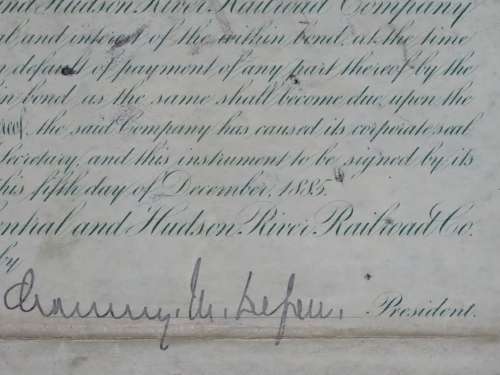 nd Hudson River Railroad Company
al and interest of the within bond, at the time
n default of payment of any part thereof by the
in bond, as the same shall become due, upon the
reof, the said Company has caused its corporate seal
Secretary, and this instrument to be signed by its
this fifth day of December, 1885.
entral and Hudson River Railroad Co.
by
Chauncey M. Depew. President.